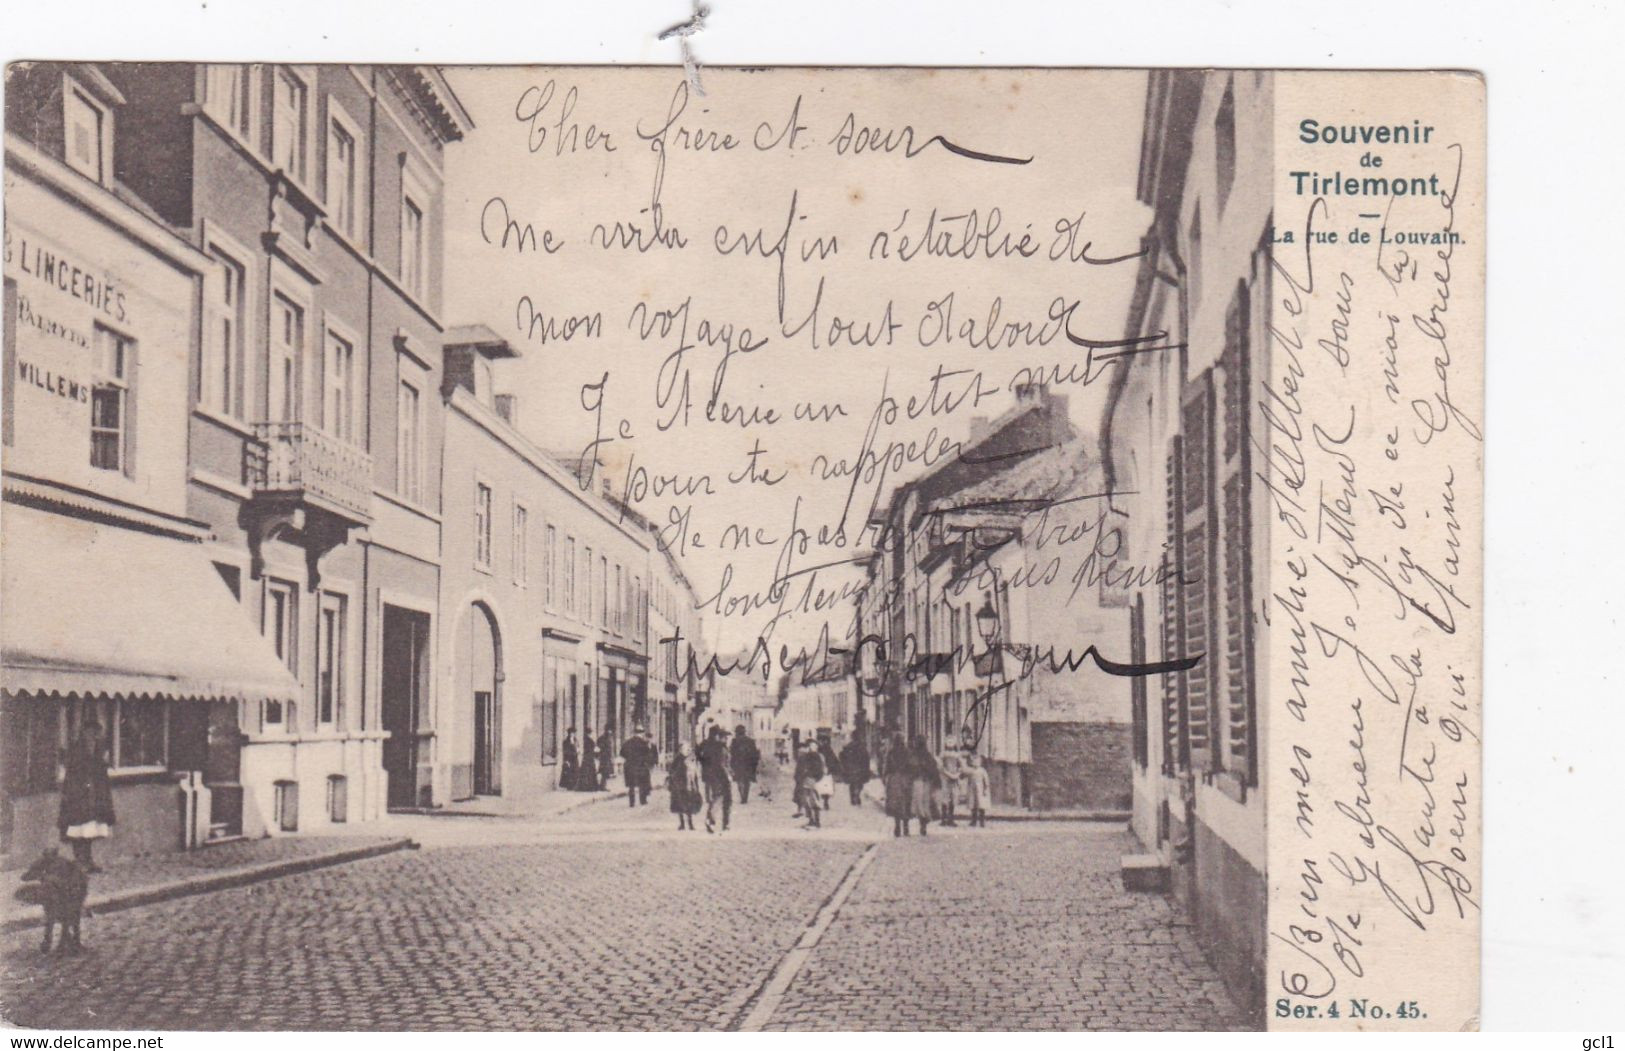 Souvenir
de
Tirlemont.
La rue de Louvain.
LINGERIES.
WILLEMS
Cher frère et soeur
Me voila enfin rétablie de
mon voyage tout dabord
Je técrie un petit mot
pour te rappeler
de ne pas rester trop
longtemps sans venir
Bien mes amitié dalbert et
de Gabrielle Je sattend sans
faute à la fin de ce mois ta
Gabrielle
Ser. 4 No. 45.
delcampe.net
gcl1